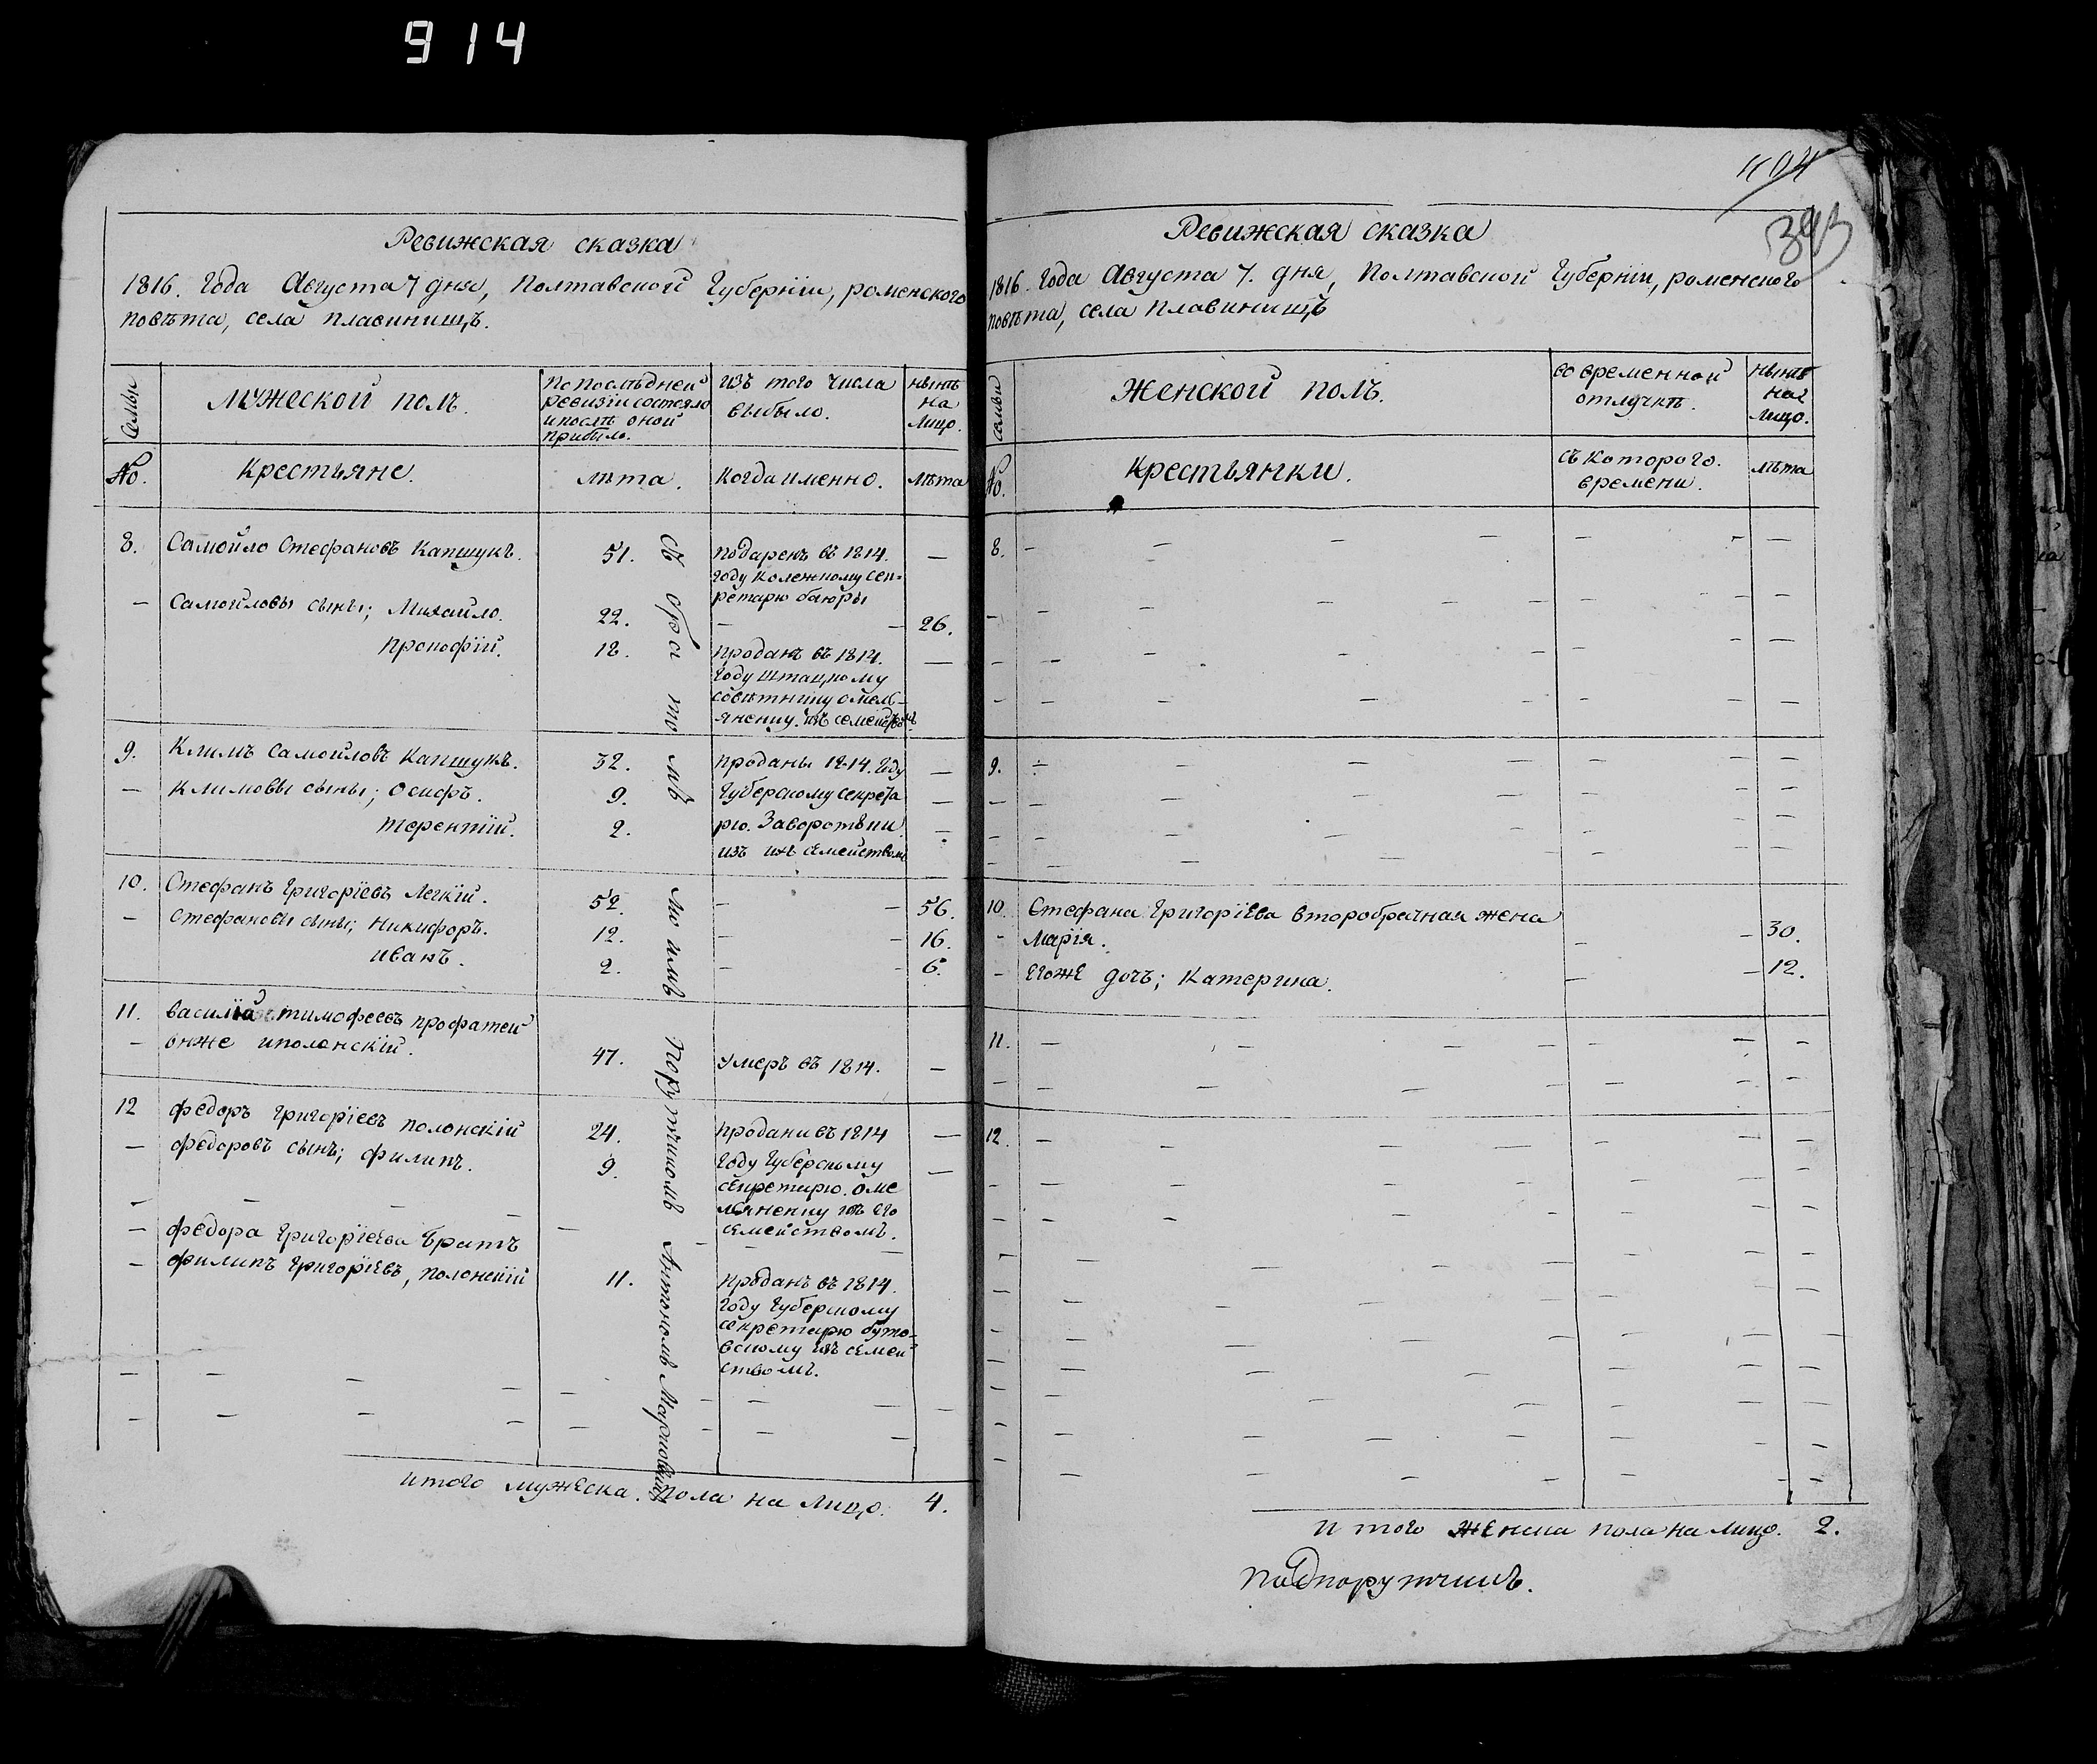 914
Ревижская сказка
1816. Года Августа 7 дня, Полтавской Губернїи, роменского
повѣта, села плавинищъ.
Семьи
мужеской полъ.
по последней
ревизїи состояло
и послѣ оной
прибыло.
изъ того числа
выбыло.
нынѣ
на
лицо.
No.
Крестьяне.
лѣта.
когда именно.
лѣта
8. Самойло Стефановъ Капшукъ. 51. подаренъ въ 1814. —
году колежному сек-
ретарю баюры
— Самойловы сыны; Михайло. 22. — — 26.
Прокофїй. 18. проданъ въ 1814. —
году штацкому
совѣтнику омель-
яненку
9. Климъ Самойловъ Капшукъ. 32. проданы 1814. году —
— Климовы сыны; Осифъ. 9. Губерскому секрета —
Терентїй. 2. рю. —
изъ ихъ семействомъ
10. Стефанъ Григорїевъ Легкїй. 52. — — 56.
— Стефановы сыны; Никифоръ. 12. — — 16.
иванъ. 2. — — 6.
11. василїй тимофеевъ профатей
— онже иполонскїй. 47. умеръ въ 1814. —
12 федоръ григорїевъ полонскїй 24. продани въ 1814 —
— федоровъ сынъ; филипъ. 9. году Губерскому —
секретарю. оме
льяненку изъ его
семействомъ.
— федора григорїева братъ
— филипъ григорїевъ, полонскїй 11. проданъ въ 1814.
году Губерскому
секретарю буто-
вскому изъ семей
ствомъ.
итого мужеска. пола на лицо. 4.
Поручикомъ
404
393
Ревижская сказка
1816. Года Августа 7. дня, Полтавской Губернїи, роменского
повѣта, села плавинищъ
семьи
Женской полъ.
во временной
отлучкѣ.
нынѣ
на
лицо.
No.
Крестьянки.
съ которого.
времени.
лѣта
8.
9.
10. Стефана Григорїева второбрачная жена
- Марїя. — — 30.
- егоже дочь; Катерина. — — 12.
11.
12.
итого женска пола на лицо. 2.
подпоручикъ.